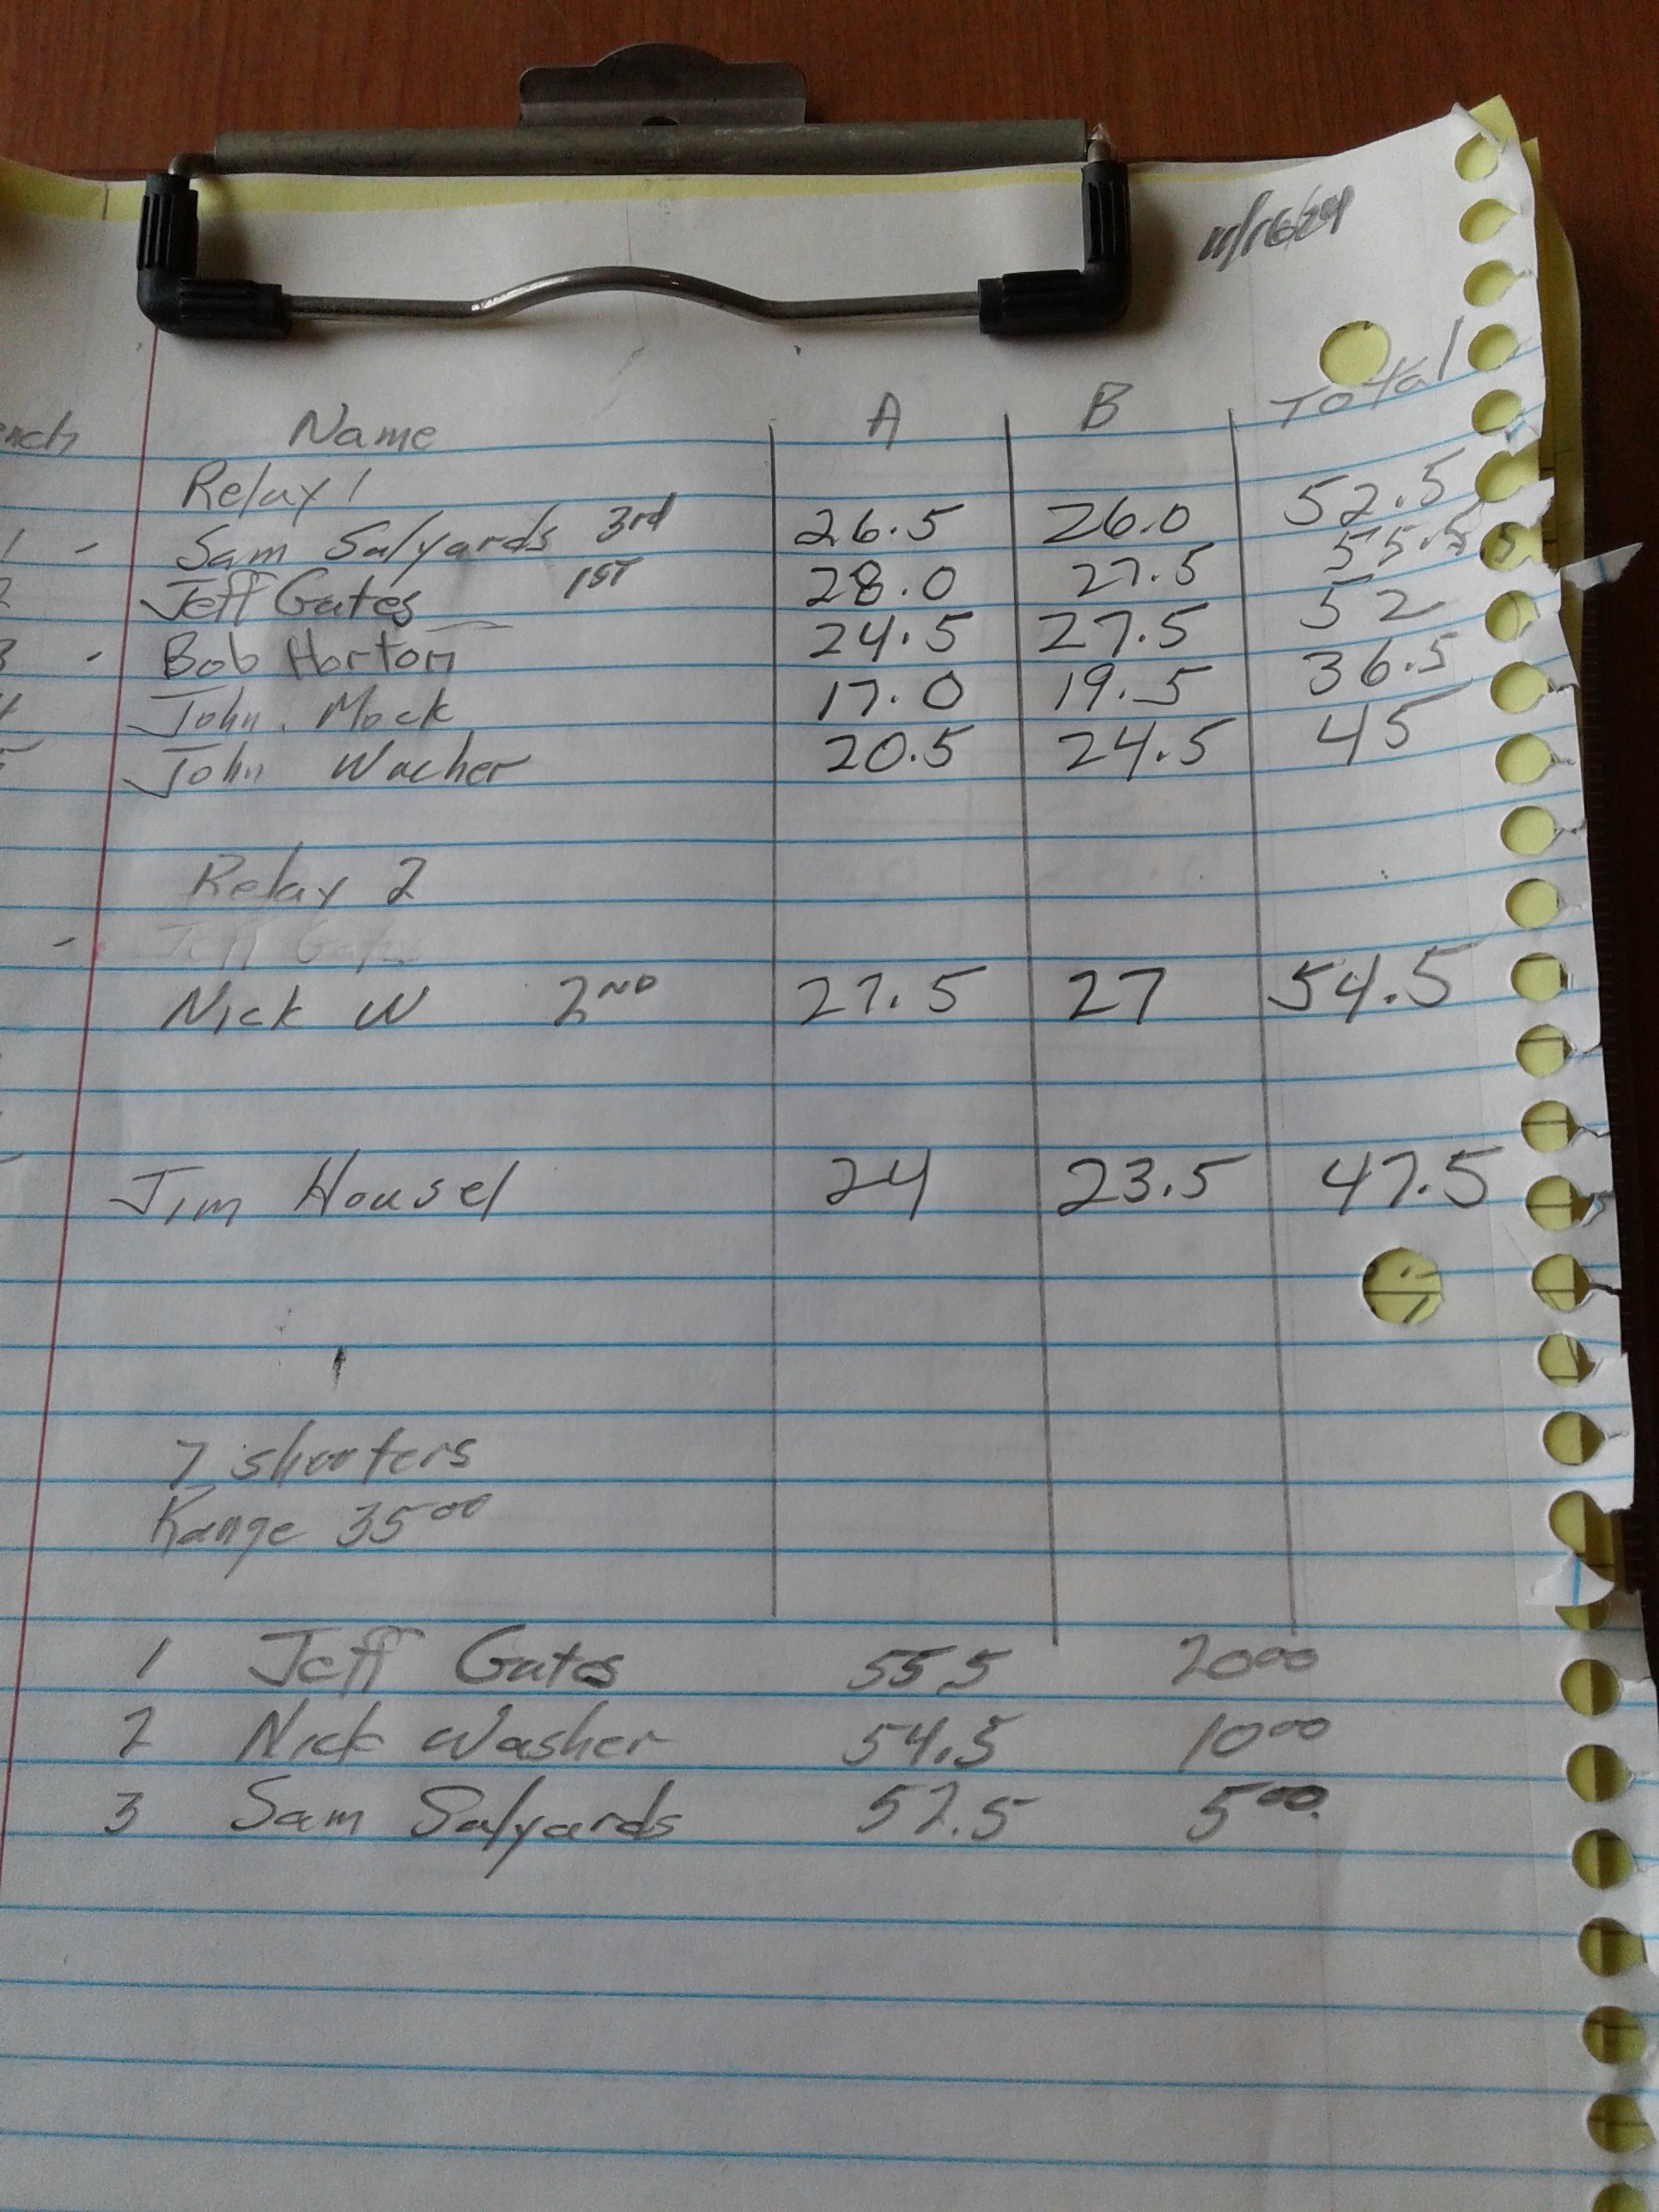 11/16/24
ench Name A B Total
Relay 1
1 - Sam Salyards 3rd 26.5 26.0 52.5
2 Jeff Gates 1ST 28.0 27.5 55.5
3 - Bob Horton 24.5 27.5 52
4 John. Mock 17.0 19.5 36.5
5 John Wacher 20.5 24.5 45
Relay 2
- Jeff Gates
Nick W 2ND 27.5 27 54.5
Jim Housel 24 23.5 47.5
7 shooters
Range 3500
1 Jeff Gates 55.5 2000
2 Nick Washer 54.5 1000
3 Sam Salyards 52.5 500